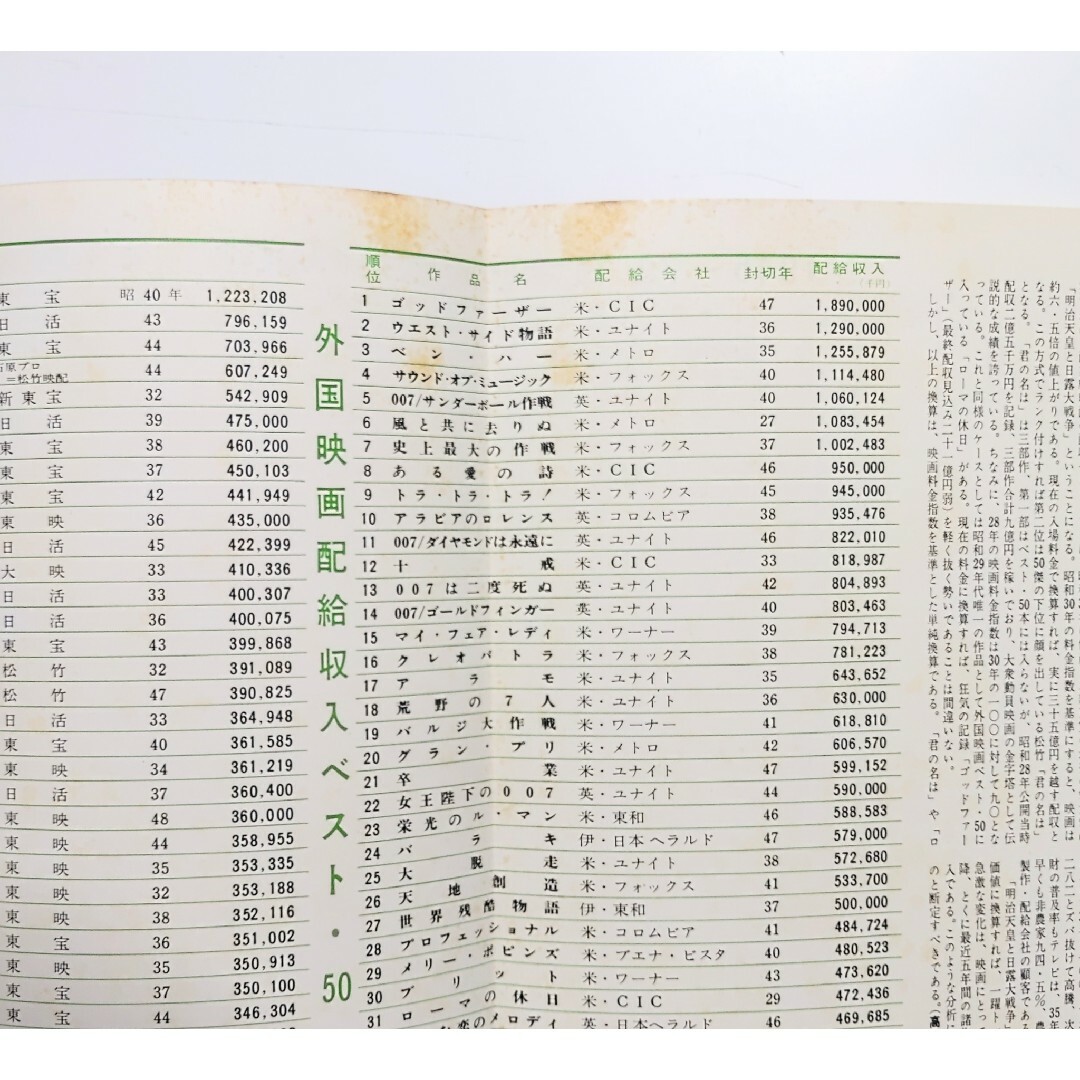 東宝 昭40年 1,223,208
日活 43 796,159
東宝 44 703,966
石原プロ
=松竹映配 44 607,249
新東宝 32 542,909
日活 39 475,000
東宝 38 460,200
東宝 37 450,103
東宝 42 441,949
東映 36 435,000
日活 45 422,399
大映 33 410,336
日活 33 400,307
日活 36 400,075
東宝 43 399,868
松竹 32 391,089
松竹 47 390,825
日活 33 364,948
東宝 40 361,585
東映 34 361,219
日活 37 360,400
東映 48 360,000
東映 44 358,955
東映 35 353,335
東映 32 353,188
東映 38 352,116
東宝 36 351,002
東映 35 350,913
東宝 37 350,100
東宝 44 346,304
外国映画配給収入ベスト・50
順位 作品名 配給会社 封切年 配給収入
(千円)
1 ゴッドファーザー 米・CIC 47 1,890,000
2 ウエスト・サイド物語 米・ユナイト 36 1,290,000
3 ベン・ハー 米・メトロ 35 1,255,879
4 サウンド・オブ・ミュージック 米・フォックス 40 1,114,480
5 007/サンダーボール作戦 英・ユナイト 40 1,060,124
6 風と共に去りぬ 米・メトロ 27 1,083,454
7 史上最大の作戦 米・フォックス 37 1,002,483
8 ある愛の詩 米・CIC 46 950,000
9 トラ・トラ・トラ! 米・フォックス 45 945,000
10 アラビアのロレンス 英・コロムビア 38 935,476
11 007/ダイヤモンドは永遠に 英・ユナイト 46 822,010
12 十戒 米・CIC 33 818,987
13 007は二度死ぬ 英・ユナイト 42 804,893
14 007/ゴールドフィンガー 英・ユナイト 40 803,463
15 マイ・フェア・レディ 米・ワーナー 39 794,713
16 クレオパトラ 米・フォックス 38 781,223
17 アラモ 米・ユナイト 35 643,652
18 荒野の7人 米・ユナイト 36 630,000
19 バルジ大作戦 米・ワーナー 41 618,810
20 グラン・プリ 米・メトロ 42 606,570
21 卒業 米・ユナイト 47 599,152
22 女王陛下の007 英・ユナイト 44 590,000
23 栄光のル・マン 米・東和 46 588,583
24 バラキ 伊・日本ヘラルド 47 579,000
25 大脱走 米・ユナイト 38 572,680
26 天地創造 米・フォックス 41 533,700
27 世界残酷物語 伊・東和 37 500,000
28 プロフェッショナル 米・コロムビア 41 484,724
29 メリー・ポピンズ 米・ブエナ・ビスタ 40 480,523
30 ブリット 米・ワーナー 43 473,620
31 ローマの休日 米・CIC 29 472,436
恋のメロディ 英・日本ヘラルド 46 469,685
「明治天皇と日露大戦争」ということになる。昭和30年の料金指数を基準にすると、映画は
約六・五倍の値上がりである。現在の入場料金で換算すれば、実に三十五億円を越す配収と
なる。この方式でランク付けすれば第二位は50傑の下位に顔を出している松竹「君の名は」
となる。「君の名は」は三部作、第一部はベスト・50本には入らないが、昭和28年公開当時
配収二億五千万円を記録、三部作合計九億円を稼いでおり、大衆動員映画の金字塔として伝
説的な成績を誇っている。ちなみに、28年の映画料金指数は30年の一〇〇に対して九〇とな
っている。これと同様のケースとしては昭和29年代唯一の作品として外国映画ベスト・50に
入っている「ローマの休日」がある。現在の料金に換算すれば、狂気の記録「ゴッドファー
ザー」(最終配収見込み二十一億円弱)を軽く抜く勢いであることは間違いない。
しかし、以上の換算は、映画料金指数を基準とした単純換算である。「君の名は」や「ロ
二八二とズバ抜けて高騰、次
財の普及率もテレビは、35年
早くも非農家九四・五%、農
製作・配給会社の顧客であ
「明治天皇と日露大戦争」
価値に換算すれば、一躍ト
急激な変化は、映画にとって
降、とくに最近五年間の諸
入である。このような分析に
のと断定すべきである。(高